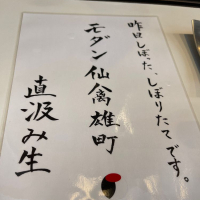 昨日しぼった、しぼりたてです。
モダン仙禽雄町
直汲み生